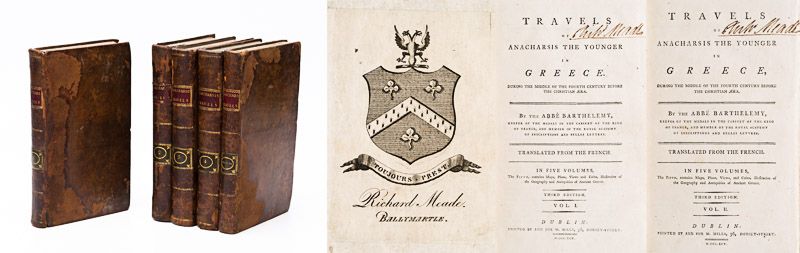 TOUJOURS PREST
Richard Meade.
BALLYMARTLE.
TRAVELS
OF
ANACHARSIS THE YOUNGER
IN
GREECE.
DURING THE MIDDLE OF THE FOURTH CENTURY BEFORE
THE CHRISTIAN ÆRA.
BY THE ABBÉ BARTHELEMY,
KEEPER OF THE MEDALS IN THE CABINET OF THE KING
OF FRANCE, AND MEMBER OF THE ROYAL ACADEMY
OF INSCRIPTIONS AND BELLES LETTRES.
TRANSLATED FROM THE FRENCH.
IN FIVE VOLUMES,
The FIFTH, contains Maps, Plans, Views and Coins, illustrative of
the Geography and Antiquities of Ancient Greece.
THIRD EDITION.
VOL. I.
DUBLIN:
PRINTED BY AND FOR M. MILLS, 36, DORSET-STREET.
TRAVELS
OF
ANACHARSIS THE YOUNGER
IN
GREECE,
DURING THE MIDDLE OF THE FOURTH CENTURY BEFORE
THE CHRISTIAN ÆRA.
BY THE ABBÉ BARTHELEMY,
KEEPER OF THE MEDALS IN THE CABINET OF THE KING
OF FRANCE, AND MEMBER OF THE ROYAL ACADEMY
OF INSCRIPTIONS AND BELLES LETTRES.
TRANSLATED FROM THE FRENCH.
IN FIVE VOLUMES,
The FIFTH, contains Maps, Plans, Views and Coins, illustrative of
the Geography and Antiquities of Ancient Greece.
THIRD EDITION.
VOL. II.
DUBLIN:
PRINTED BY AND FOR M. MILLS, 36, DORSET-STREET.